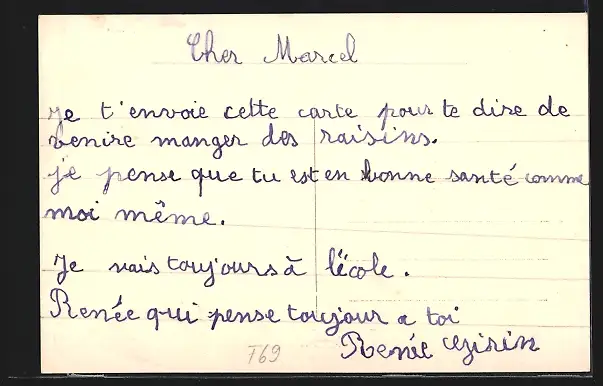 Cher Marcel
Je t'envoie cette carte pour te dire de
venire manger des raisins.
je pense que tu est en bonne santé comme
moi même.
Je vais toujours à l'école.
Renée qui pense toujour a toi
Renée
T69